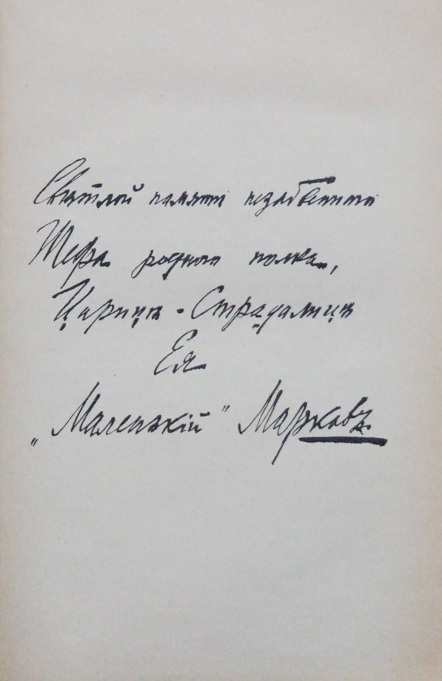 Свѣтлой памяти незабвенной
Шефа родного полка,
Царицѣ - Страдалицѣ
Ея
„Маленькій“ Марковъ.